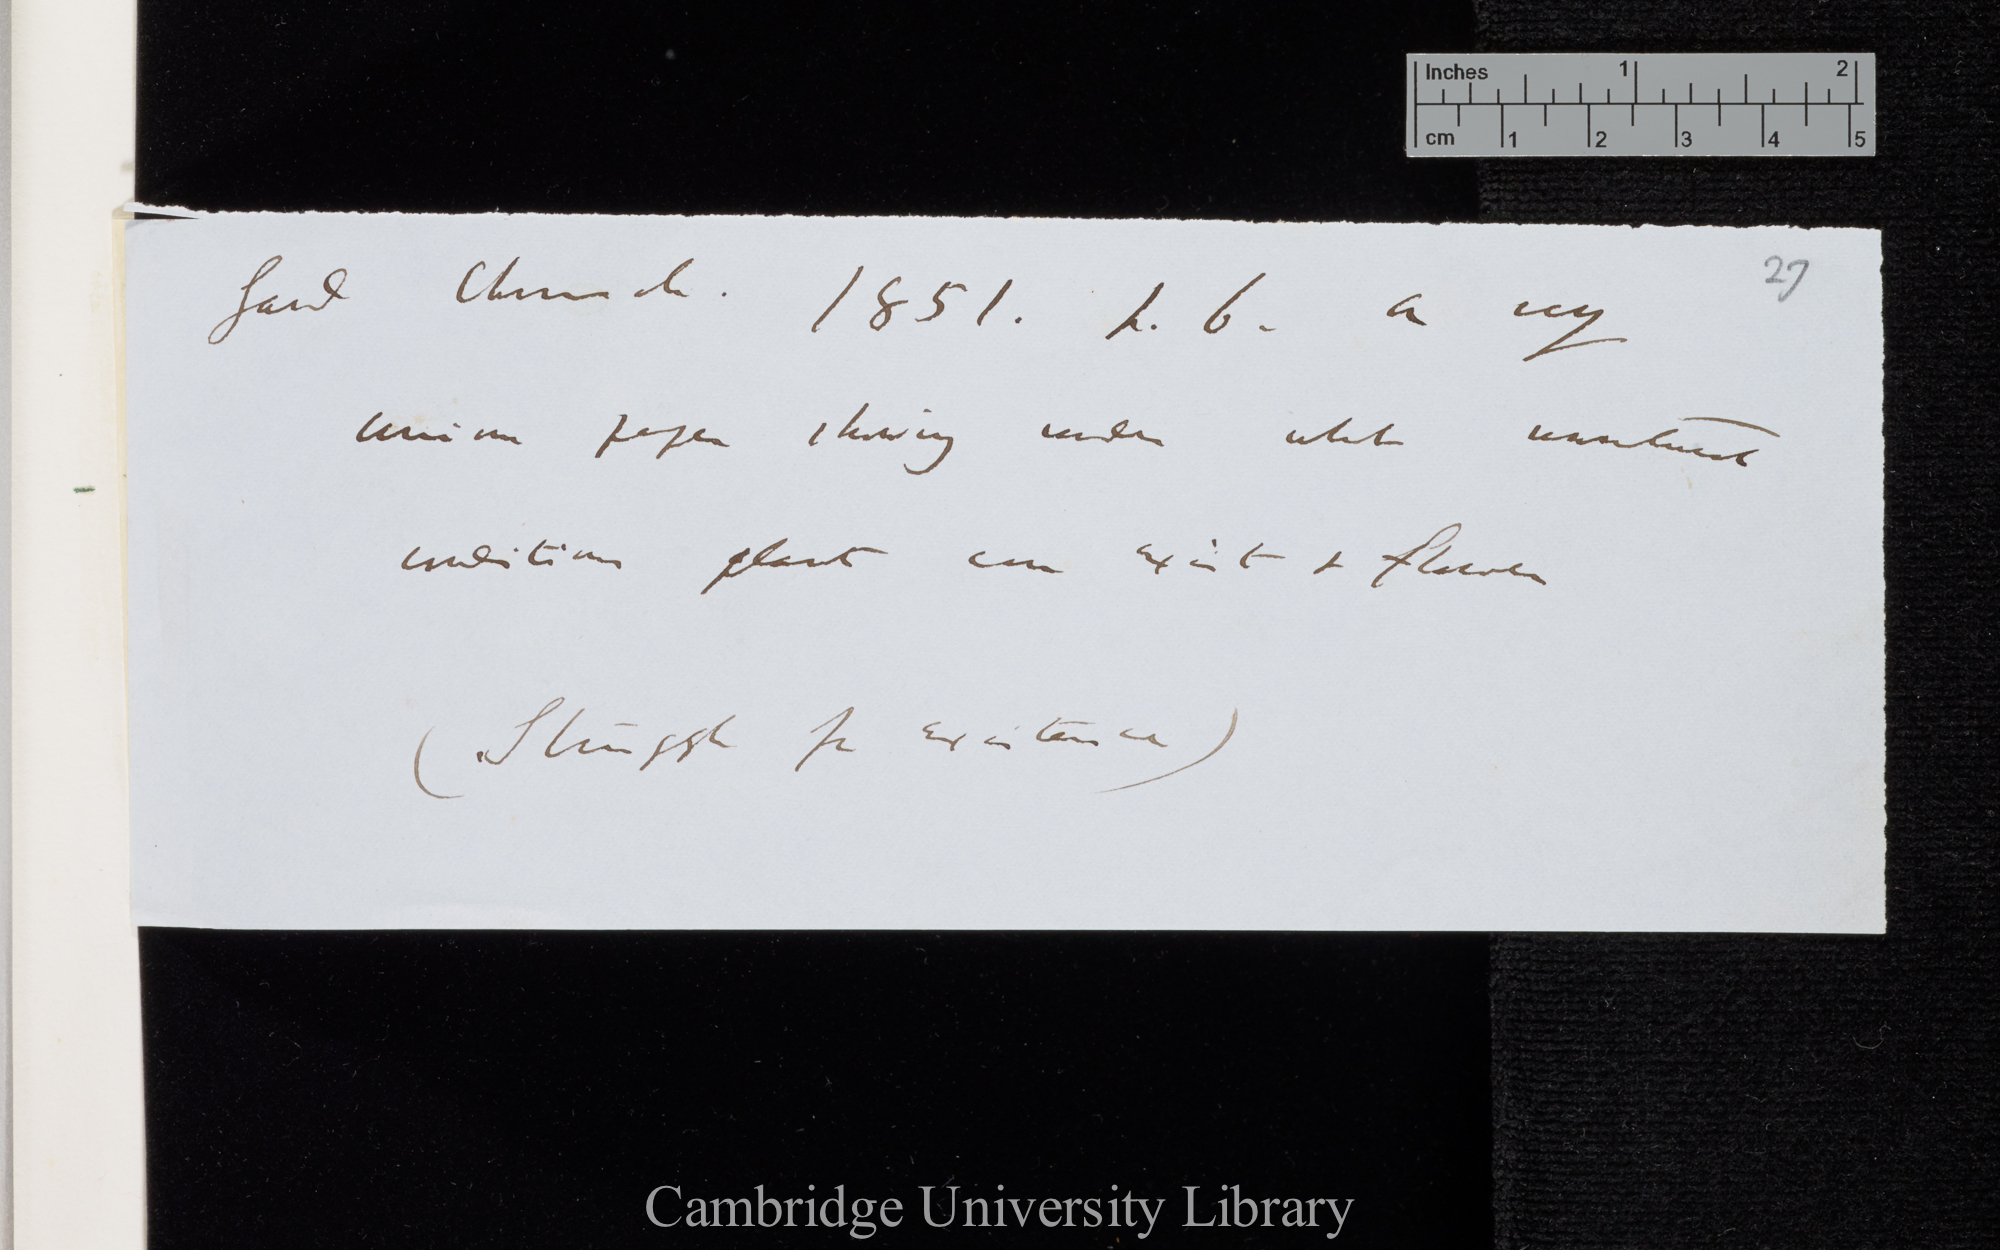 Inches 1 2
cm 1 2 3 4 5
27
Gard Chronicle. 1851. p. 6. a very
curious paper showing under what
conditions plant can exist & flower
(Struggle for existence)
Cambridge University Library